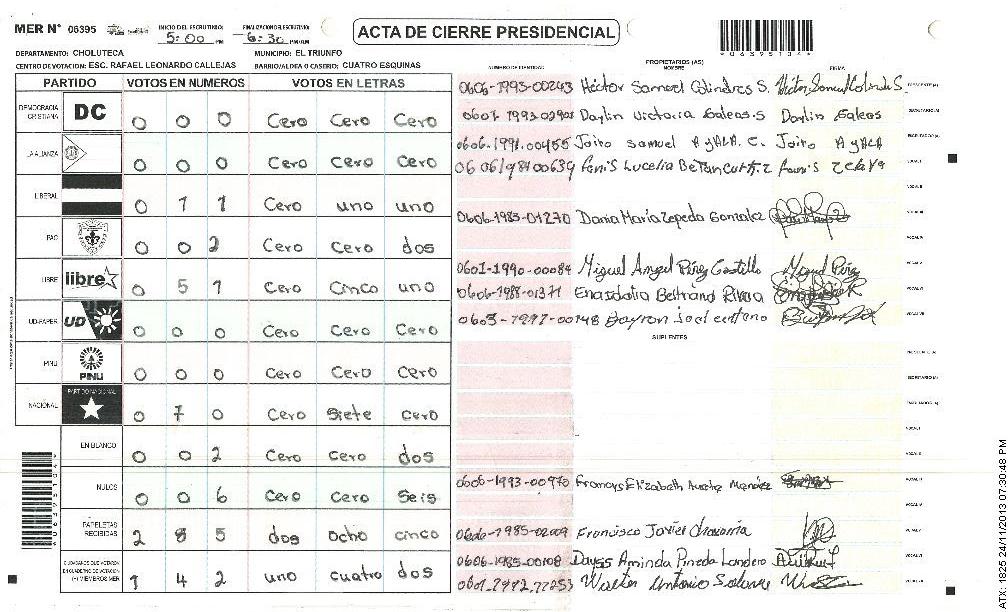 MER N° 06395
INICIO DEL ESCRUTINIO: 5:00 PM
FINALIZACION ESCRUTINIO: 6:30 PM/AM
ACTA DE CIERRE PRESIDENCIAL
06395101
DEPARTAMENTO: CHOLUTECA
MUNICIPIO: EL TRIUNFO
CENTRO DE VOTACION: ESC. RAFAEL LEONARDO CALLEJAS
BARRIO/ALDEA O CASERIO: CUATRO ESQUINAS
PARTIDO VOTOS EN NUMEROS VOTOS EN LETRAS
DEMOCRACIA CRISTIANA DC 0 0 0 Cero Cero Cero
LA ALIANZA 0 0 0 Cero Cero Cero
LIBERAL 0 1 1 Cero uno uno
PAC 0 0 2 Cero Cero dos
LIBRE libre 0 5 1 Cero Cinco uno
UD-FAPER UD 0 0 0 Cero Cero Cero
PINU PINU 0 0 0 Cero Cero Cero
NACIONAL PARTIDO NACIONAL 0 7 0 Cero Siete Cero
EN BLANCO 0 0 2 Cero Cero dos
NULOS 0 0 6 Cero Cero Seis
PAPELETAS RECIBIDAS 2 8 5 dos ocho cinco
CIUDADANOS QUE VOTARON EN CUADERNO DE VOTACION (+) MIEMBROS MER 1 4 2 uno cuatro dos
NUMERO DE IDENTIDAD
PROPIETARIOS (AS)
NOMBRE
FIRMA
0606-1993-00243 Héctor Samuel Colindres S. PRESIDENTE (A)
0601 1993 02902 Daylin Victoria Galeas.S Daylin Galeas SECRETARIO (A)
0606-1991-00455 Jairo Samuel Ayala. C. Jairo Ayala ESCRUTADOR (A)
0606 1984 00639 Fanis Lucelia VOCAL I
VOCAL II
0606-1983-01270 Dania María Zepeda Gonzalez VOCAL III
VOCAL IV
0601-1990-00084 Miguel Angel Pérez Castillo Miguel Pérez VOCAL V
0606-1988-01371 Beltrand Rivera VOCAL VI
0603-1997-00148 Bayron Joel VOCAL VII
SUPLENTES
PRESIDENTE (A)
SECRETARIO (A)
ESCRUTADOR (A)
VOCAL I
VOCAL II
0606-1993-00970 Francys Elizabeth VOCAL III
VOCAL IV
0606-1985-02009 Francisco Javier VOCAL V
0606-1985-00108 Aminda Pineda VOCAL VI
Walter Antonio VOCAL VII
ATX: 1825 24/11/2013 07:30:48 PM